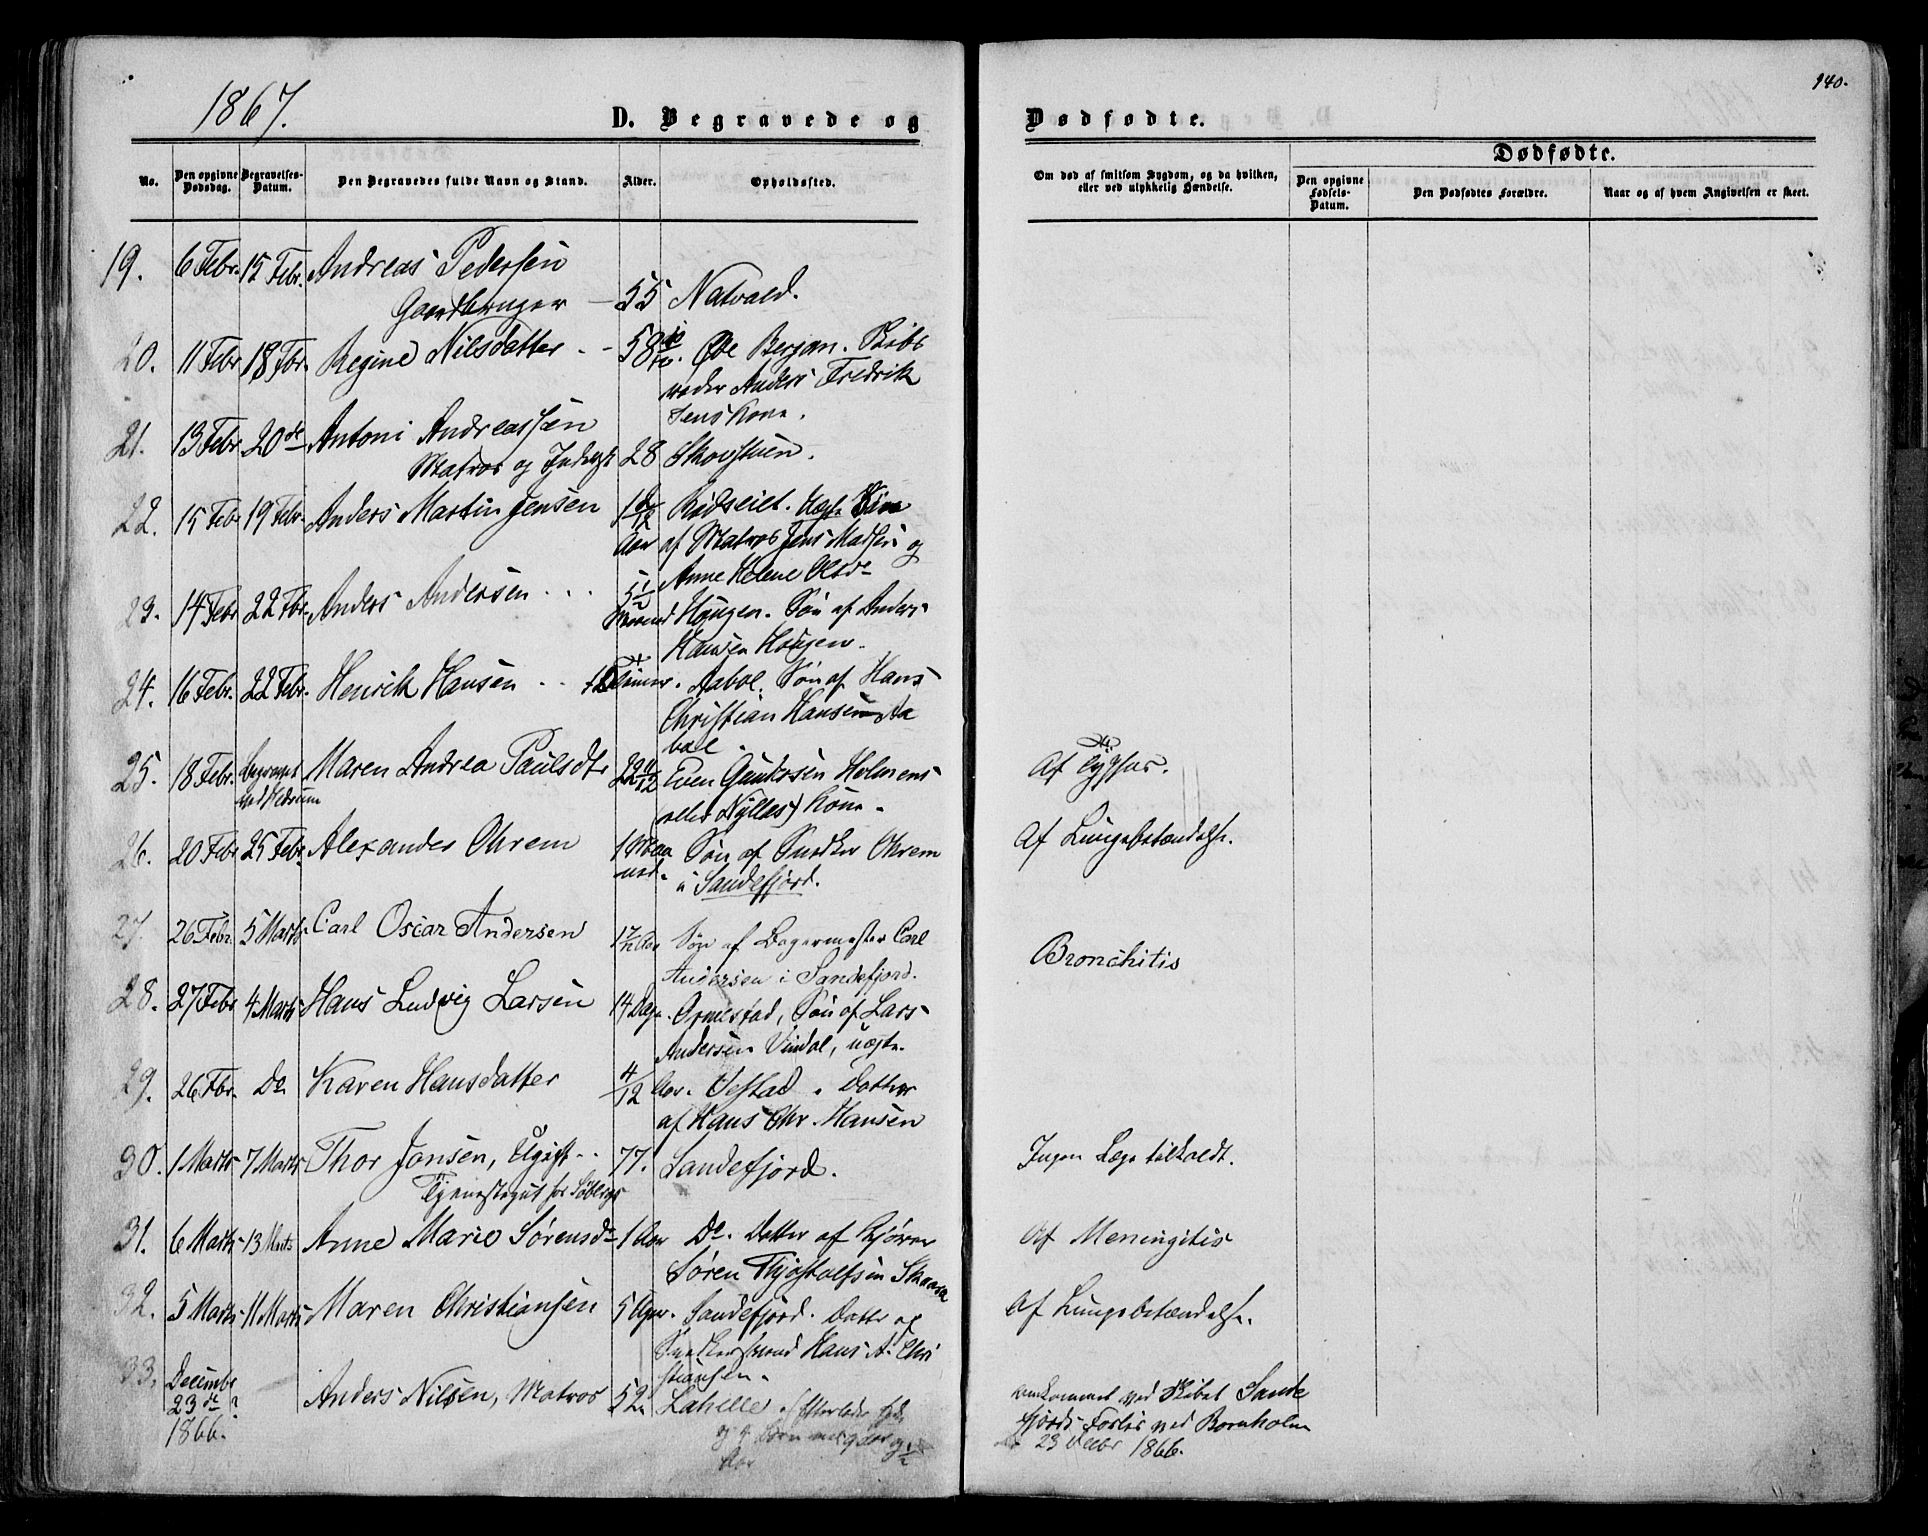 1867.
D. Begravede og
Dødfødte.
140.
No.
Den opgivne Dødsdag.
Begravelses-Datum.
Den Begravedes fulde Navn og Stand.
Alder.
Opholdssted.
Om død af smitsom Sygdom, og da hvilken,
eller ved ulykkelig Hændelse.
Dødfødte.
Den opgivne Fødsels-Datum.
Den Dødfødtes Forældre.
Naar og af hvem Angivelsen er skeet.
19. 6 Febr. 15 Febr. Andreas Pedersen
Gaardbruger 55 Natvald.
20. 11 Febr 18 Fbr. Regine Nilsdatter 58 Øde Bergan. Skibs
reder Anders Fredrik
Jens Kone.
21. 13 Febr 20de Antoni Andreassen
Matros og Inderst 28 Skovstuen.
22. 15 Febr 19 Febr. Anders Martin Jensen Rødseiet. Uægte Søn
Aar af Matros Jens Madsen og
Anne Helene Olsdr
23. 14 Febr 22 Fbr. Anders Andersen 5 1/2
Maaned Haugen. Søn af Anders
Hansen Haugen.
24. 16 Febr. 22 Febr. Henrik Hansen Timer. Aabol. Søn af Hans
Christian Hansen Aa
bol.
25. 18 Febr. begravet Maren Andrea Paulsdtr 22 11/12 Even Holmens
ved Hedrum (eller Nyllas) Kone. Af Tyfus.
26. 20 Febr 25 Febr. Alexander Ohrem 1 Maa Søn af Snedker Ohrem
ned. i Sandefjord. Af Lungebetændelse.
27. 26 Febr. 5 Marts Carl Oscar Andersen 1 7/12 Aar Søn af Bagermester Carl
Andersen i Sandefjord. Bronchitis
28. 27 Febr 4 Marts Hans Ludvig Larsen 14 Dage. Ormestad, Søn af Lars
Andersen Vindal, uægte.
29. 26 Fbr. Do Karen Hansdatter 4/12 Aar. Vestad. Datter
af Hans Chr. Hansen
30. 1 Marts 7 Marts Thor Jansen, Ugift 77. Sandefjord. Ingen Læge tilkaldt.
Tjenestegut for Søbergs
31. 6 Marts 13 Marts Anne Marie Sørensdr 1 Aar Do. Datter af Kjører
Søren Thjostolfsen Af Meningitis
32. 5 Marts 11 Marts Maren Christiansen 5 Aar. Sandefjord. Datter af
Snedkersvend Hans A. Chri
stiansen. Af Lungebetændelse.
33. Decembr
23de ? Anders Nilsen, Matros 52. Lahelle. (Efterlader
1866. og Børn og
Aar
omkommet ved Skibet Sande
fjords Forlis ved Bornholm
23 Decbr 1866.